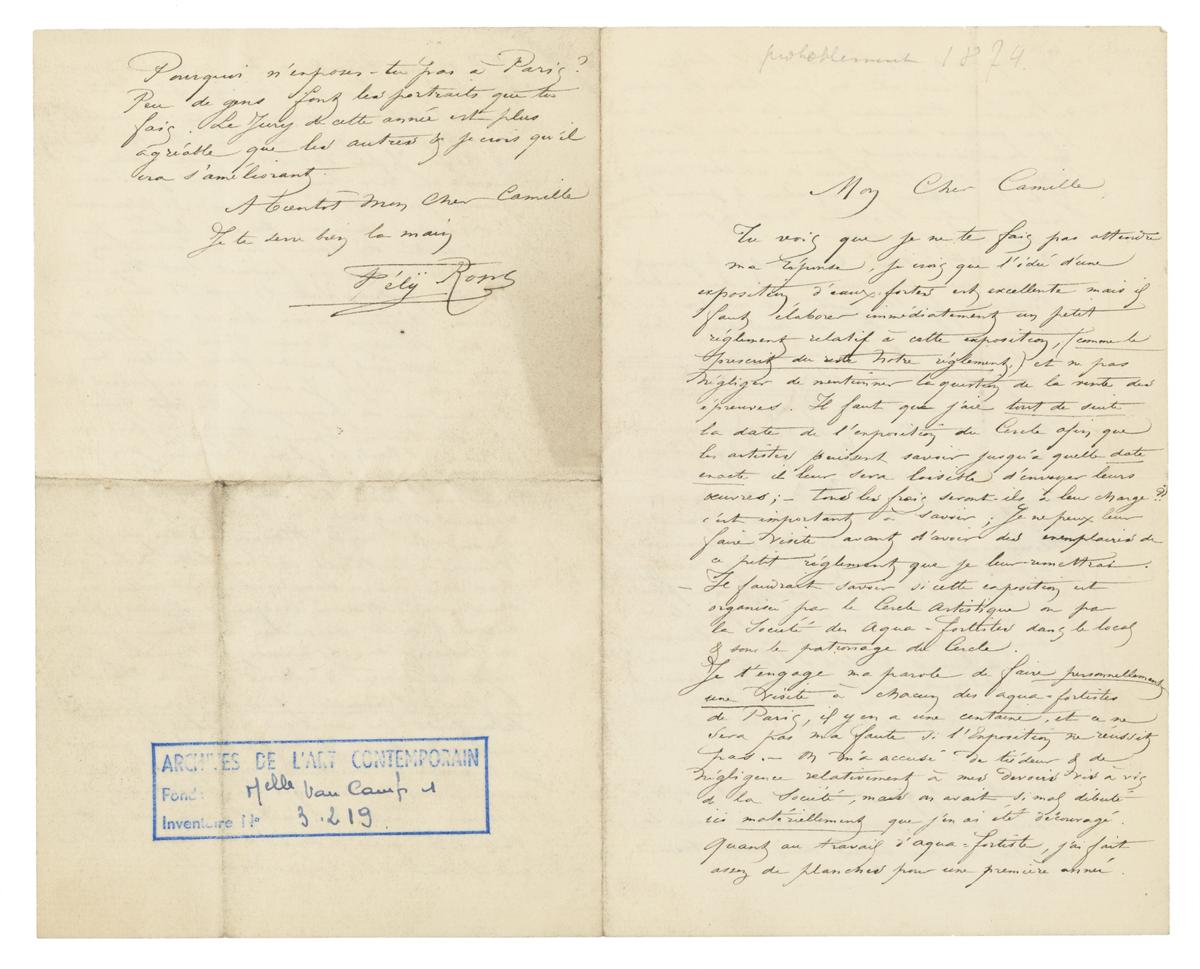 probablement 1874.
Mon Cher Camille
Tu vois que je ne te fais pas attendre
ma réponse, je crois que l'idée d'une
exposition d'eaux-fortes est excellente mais il
faut élaborer immédiatement un petit
réglement relatif à cette exposition, (comme le
prescrit du reste notre réglement,) et ne pas
négliger de mentionner la question de la vente des
épreuves. Il faut que j'aie tout de suite
la date de l'exposition du Cercle afin que
les artistes puissent savoir jusqu'à quelle date
exacte il leur sera loisible d'envoyer leurs
œuvres; – tous les frais seront-ils à leur charge ??
c'est important à savoir; Je ne peux leur
faire visite avant d'avoir des exemplaires de
ce petit réglement que je leur remettrai.
– Il faudrait savoir si cette exposition est
organisée par le Cercle Artistique ou par
la Société des Aqua-fortistes dans le local
& sous le patronage du Cercle.
Je t'engage ma parole de faire personnellement
une visite à chacun des aqua-fortistes
de Paris, il y en a une centaine, et ce ne
sera pas ma faute si l'Exposition ne réussit
pas. – On m'a accusé de tiédeur & de
négligence relativement à mes devoirs vis à vis
de la Société, mais on avait si mal débuté
ici matériellement que j'en ai été découragé.
Quant au travail d'aqua-fortiste, j'ai fait
assez de planches pour une première année.
Pourquoi n'exposes-tu pas à Paris?
Peu de gens font les portraits que tu
fais. Le Jury de cette année est plus
agréable que les autres & je crois qu'il
ira s'améliorant.
A bientot Mon Cher Camille
Je te serre bien la main
Fély Rops
ARCHIVES DE L'ART CONTEMPORAIN
Fonds Melle Van Camp 1
Inventaire No 3.219